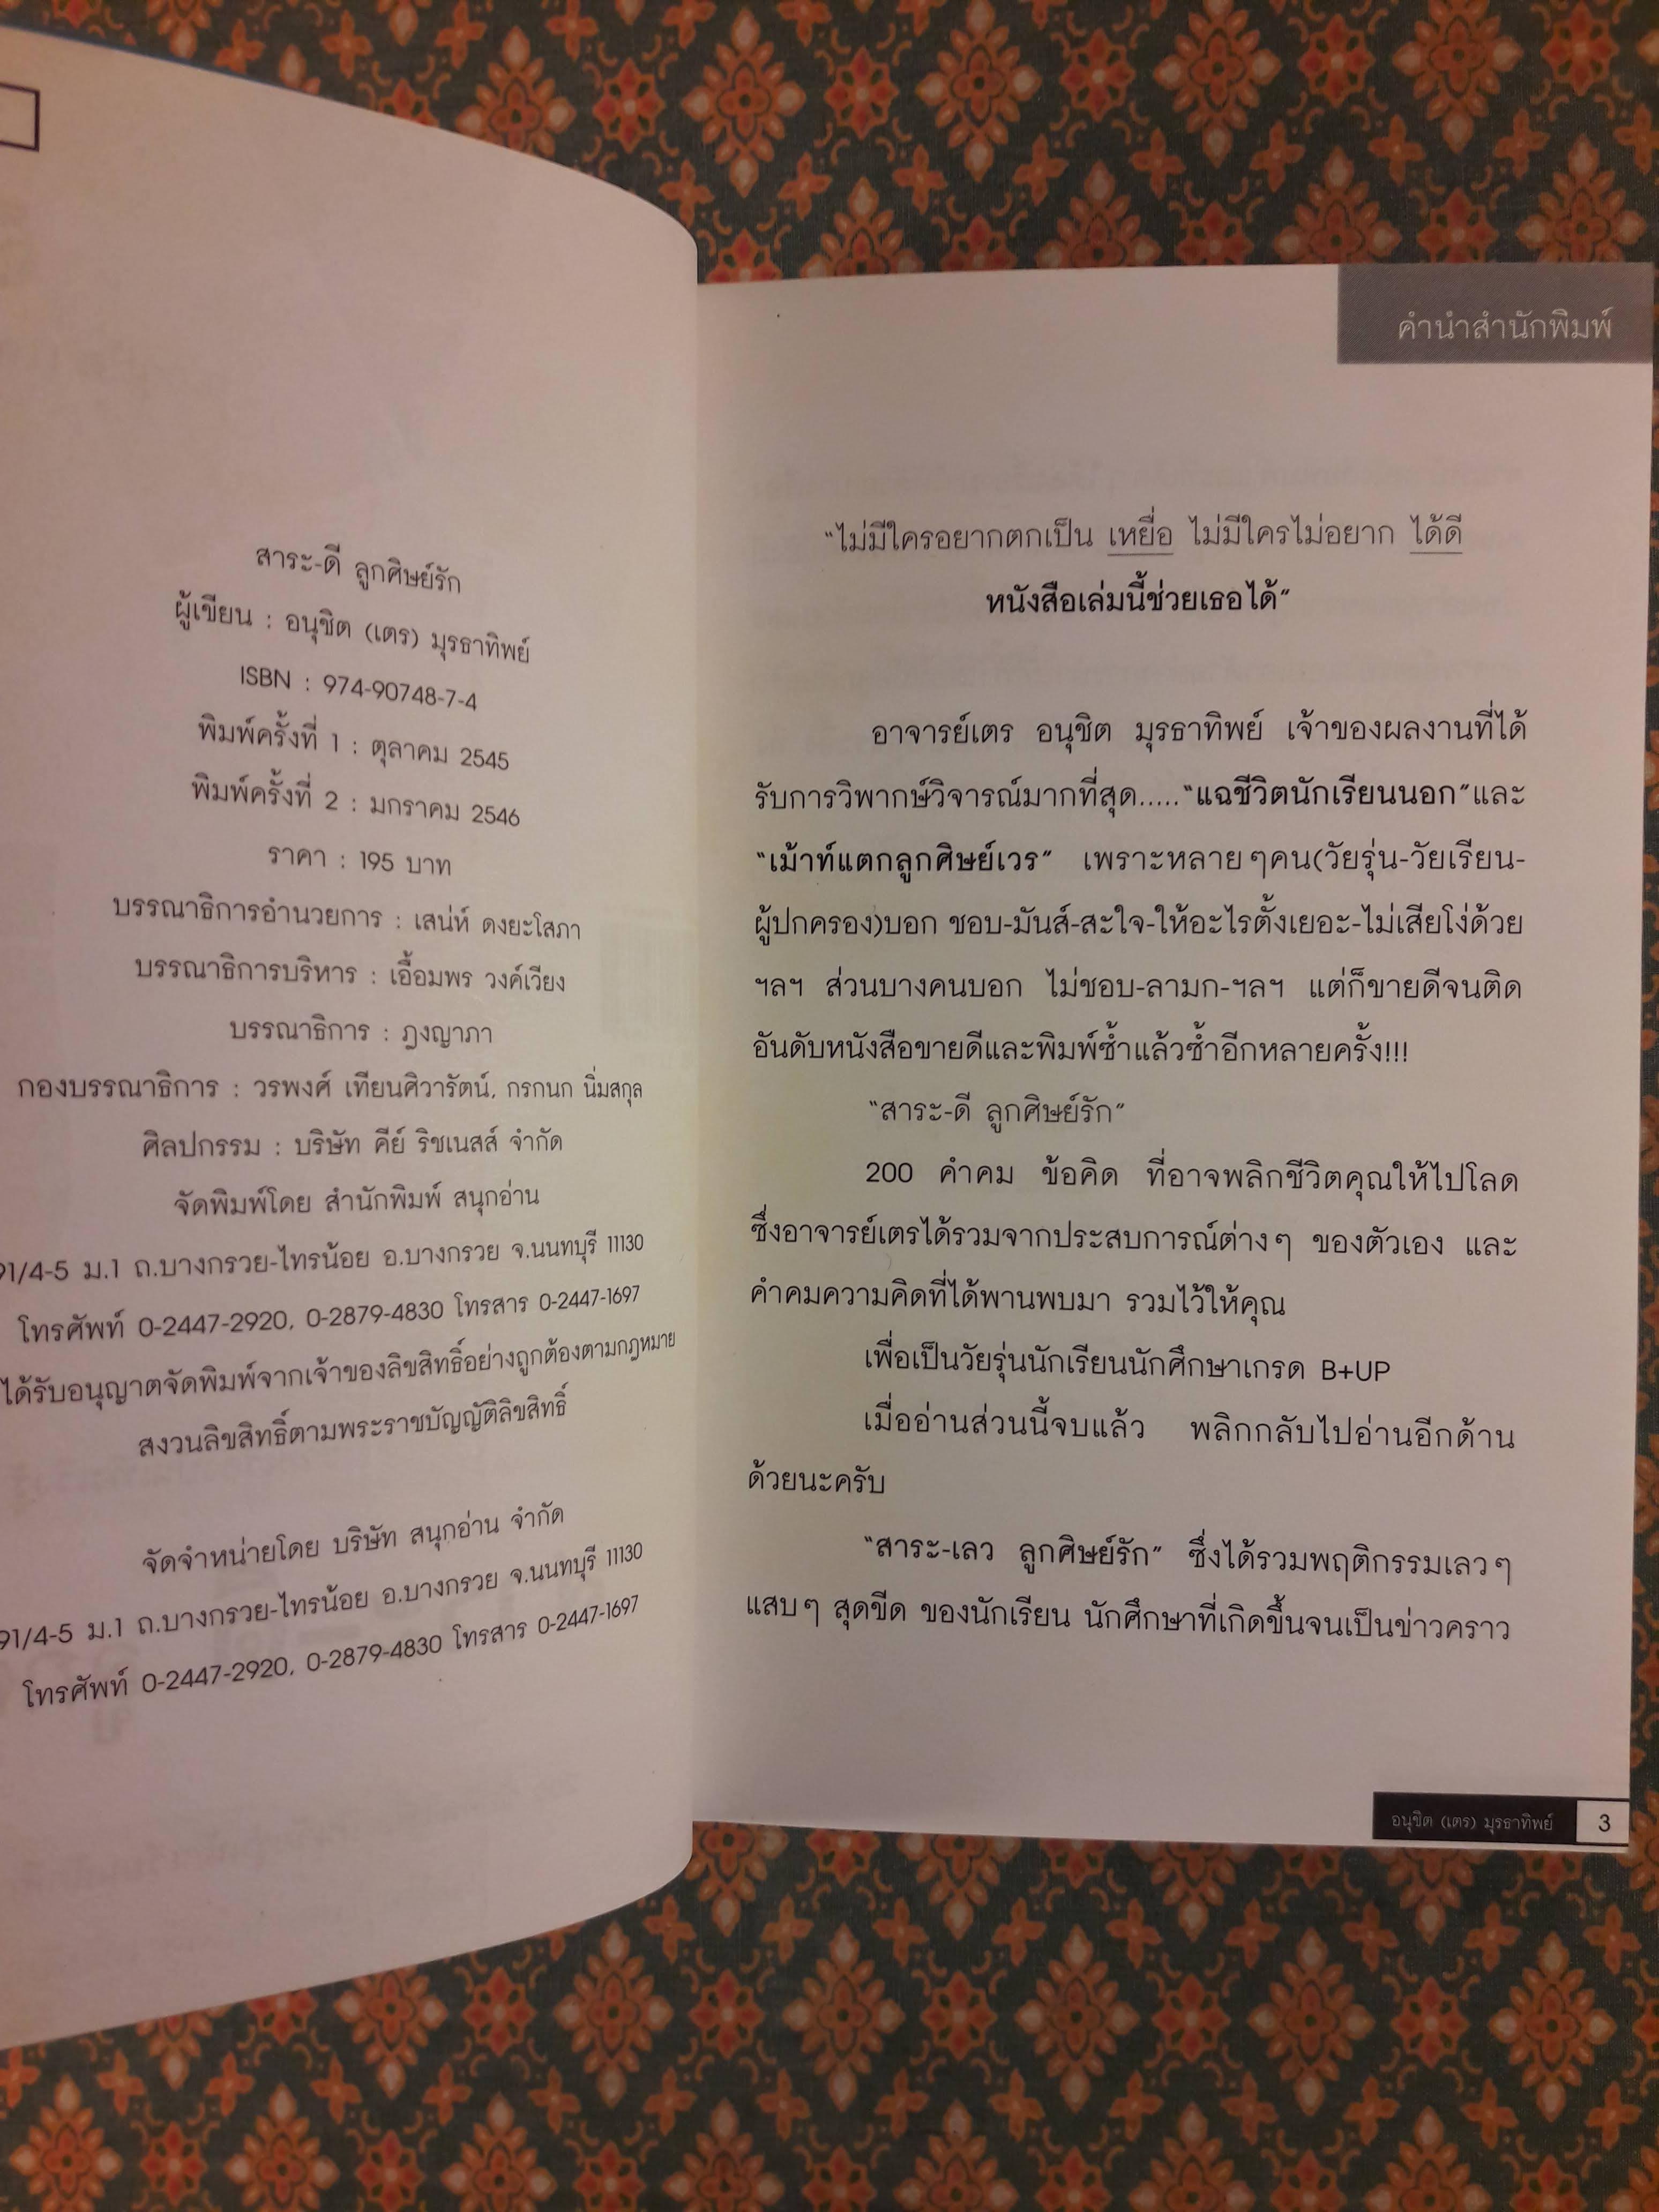 สาระ-ดี ลูกศิษย์รัก
ผู้เขียน : อนุชิต (เตร) มุรธาทิพย์
ISBN : 974-90748-7-4
พิมพ์ครั้งที่ 1 : ตุลาคม 2545
พิมพ์ครั้งที่ 2 : มกราคม 2546
ราคา : 195 บาท
บรรณาธิการอำนวยการ : เสน่ห์ ดงยะโสภา
บรรณาธิการบริหาร : เอื้อมพร วงค์เวียง
บรรณาธิการ : ฎงญาภา
กองบรรณาธิการ : วรพงศ์ เทียนศิวารัตน์, กรกนก นิ่มสกุล
ศิลปกรรม : บริษัท คีย์ ริชเนสส์ จำกัด
จัดพิมพ์โดย สำนักพิมพ์ สนุกอ่าน
91/4-5 ม.1 ถ.บางกรวย-ไทรน้อย อ.บางกรวย จ.นนทบุรี 11130
โทรศัพท์ 0-2447-2920, 0-2879-4830 โทรสาร 0-2447-1697
ได้รับอนุญาตจัดพิมพ์จากเจ้าของลิขสิทธิ์อย่างถูกต้องตามกฎหมาย
สงวนลิขสิทธิ์ตามพระราชบัญญัติลิขสิทธิ์
จัดจำหน่ายโดย บริษัท สนุกอ่าน จำกัด
91/4-5 ม.1 ถ.บางกรวย-ไทรน้อย อ.บางกรวย จ.นนทบุรี 11130
โทรศัพท์ 0-2447-2920, 0-2879-4830 โทรสาร 0-2447-1697
คำนำสำนักพิมพ์
"ไม่มีใครอยากตกเป็น เหยื่อ ไม่มีใครไม่อยาก ได้ดี
หนังสือเล่มนี้ช่วยเธอได้"
อาจารย์เตร อนุชิต มุรธาทิพย์ เจ้าของผลงานที่ได้
รับการวิพากษ์วิจารณ์มากที่สุด....."แฉชีวิตนักเรียนนอก"และ
"เม้าท์แตกลูกศิษย์เวร" เพราะหลายๆคน(วัยรุ่น-วัยเรียน-
ผู้ปกครอง)บอก ชอบ-มันส์-สะใจ-ให้อะไรตั้งเยอะ-ไม่เสียโง่ด้วย
ฯลฯ ส่วนบางคนบอก ไม่ชอบ-ลามก-ฯลฯ แต่ก็ขายดีจนติด
อันดับหนังสือขายดีและพิมพ์ซ้ำแล้วซ้ำอีกหลายครั้ง!!!
"สาระ-ดี ลูกศิษย์รัก"
200 คำคม ข้อคิด ที่อาจพลิกชีวิตคุณให้ไปโลด
ซึ่งอาจารย์เตรได้รวมจากประสบการณ์ต่างๆ ของตัวเอง และ
คำคมความคิดที่ได้พานพบมา รวมไว้ให้คุณ
เพื่อเป็นวัยรุ่นนักเรียนนักศึกษาเกรด B+UP
เมื่ออ่านส่วนนี้จบแล้ว พลิกกลับไปอ่านอีกด้าน
ด้วยนะครับ
"สาระ-เลว ลูกศิษย์รัก" ซึ่งได้รวมพฤติกรรมเลวๆ
แสบๆ สุดขีด ของนักเรียน นักศึกษาที่เกิดขึ้นจนเป็นข่าวคราว
อนุชิต (เตร) มุรธาทิพย์ 3